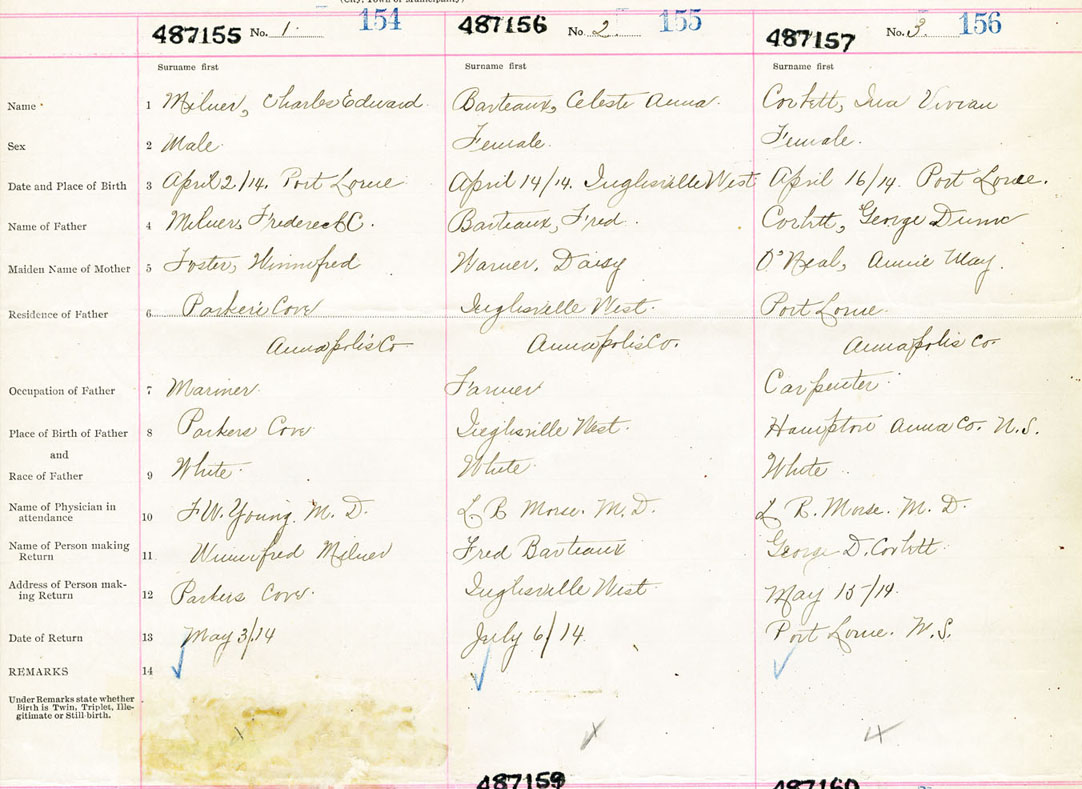 (City, Town or Municipality)
487155 No. 1. 154 487156 No. 2. 155 487157 No. 3. 156
Surname first Surname first Surname first
Name 1 Milner, Charles Edward Barteaux, Celeste Anna. Corbett, Ina Vivian
Sex 2 Male Female. Female.
Date and Place of Birth 3 April 2/14. Port Lorne April 14/14. Inglisville West April 16/14. Port Lorne.
Name of Father 4 Milner, Frederect C. Barteaux, Fred. Corbett, George
Maiden Name of Mother 5 Foster, Winnifred Warner, Daisy O'Neal, Annie May.
Residence of Father 6 Parker's Cove Inglisville West. Port Lorne.
Annapolis Co Annapolis Co. Annapolis Co.
Occupation of Father 7 Mariner. Farmer Carpenter
Place of Birth of Father 8 Parkers Cove Inglisville West. Hampton Anna Co. N.S.
and
Race of Father 9 White. White. White
Name of Physician in attendance 10 F.W. Young. M.D. L R Morse. M.D. L R. Morse. M.D.
Name of Person making Return 11 Winnifred Milner Fred Barteaux George D. Corbett.
Address of Person making Return 12 Parkers Cove. Inglisville West. May 15/14.
Date of Return 13 May 3/14 July 6/14. Port Lorne. N.S.
REMARKS 14
Under Remarks state whether
Birth is Twin, Triplet, Ille-
gitimate or Still-birth.
487159 487160